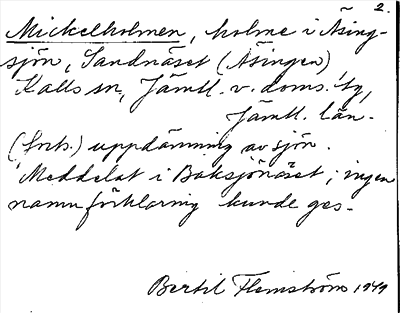 2.
Mickelholmen, holme i Äsing-
sjön, Sandnäset (Äsingen)
Kalls sn, Jämtl. v. doms:s
Jämtl. län.
uppdämning av sjön.
Meddelat i Baksjönäset; ingen
namnförklaring kunde ges.
Bertil Flemström 1949